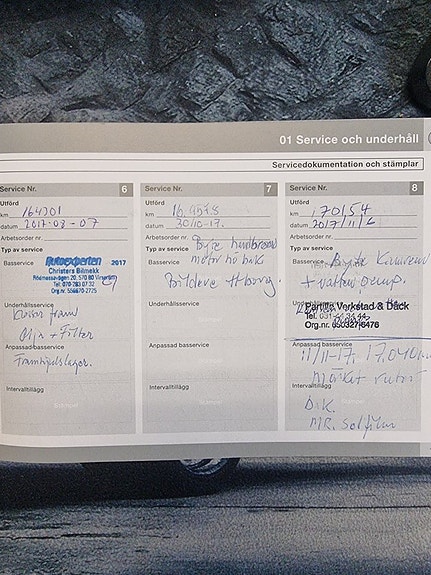 01 Service och underhåll
Servicedokumentation och stämplar
Service Nr. 6
Utförd
km 164301
datum 2017-08-07
Arbetsorder nr.
Typ av service
Basservice
Autoexperten 2017
Christers Bilmekk
Tel. 070-283 07 32
Org.nr. 556870-2725
Underhållsservice
fram
Olja + Filter
Anpassad basservice
Framhjulslager.
Intervalltillägg
Stämpel
Service Nr. 7
Utförd
km
datum 30/10-17.
Arbetsorder nr.
Byte
Typ av service
motor hö bak
Basservice
Bildeve Hborg.
Underhållsservice
Anpassad basservice
Intervalltillägg
Stämpel
Service Nr. 8
Utförd
km 170154
datum 2017/11/6
Arbetsorder nr.
Typ av service
Byte Kamrem
Basservice
+ vattenpump.
Underhållsservice
Partille Verkstad & Däck
Tel. 031-44 34 44
Org.nr. 050327-6476
Anpassad basservice
11/11-17,
Mörkat rutor
Intervalltillägg
D.K.
MR. Solfilm